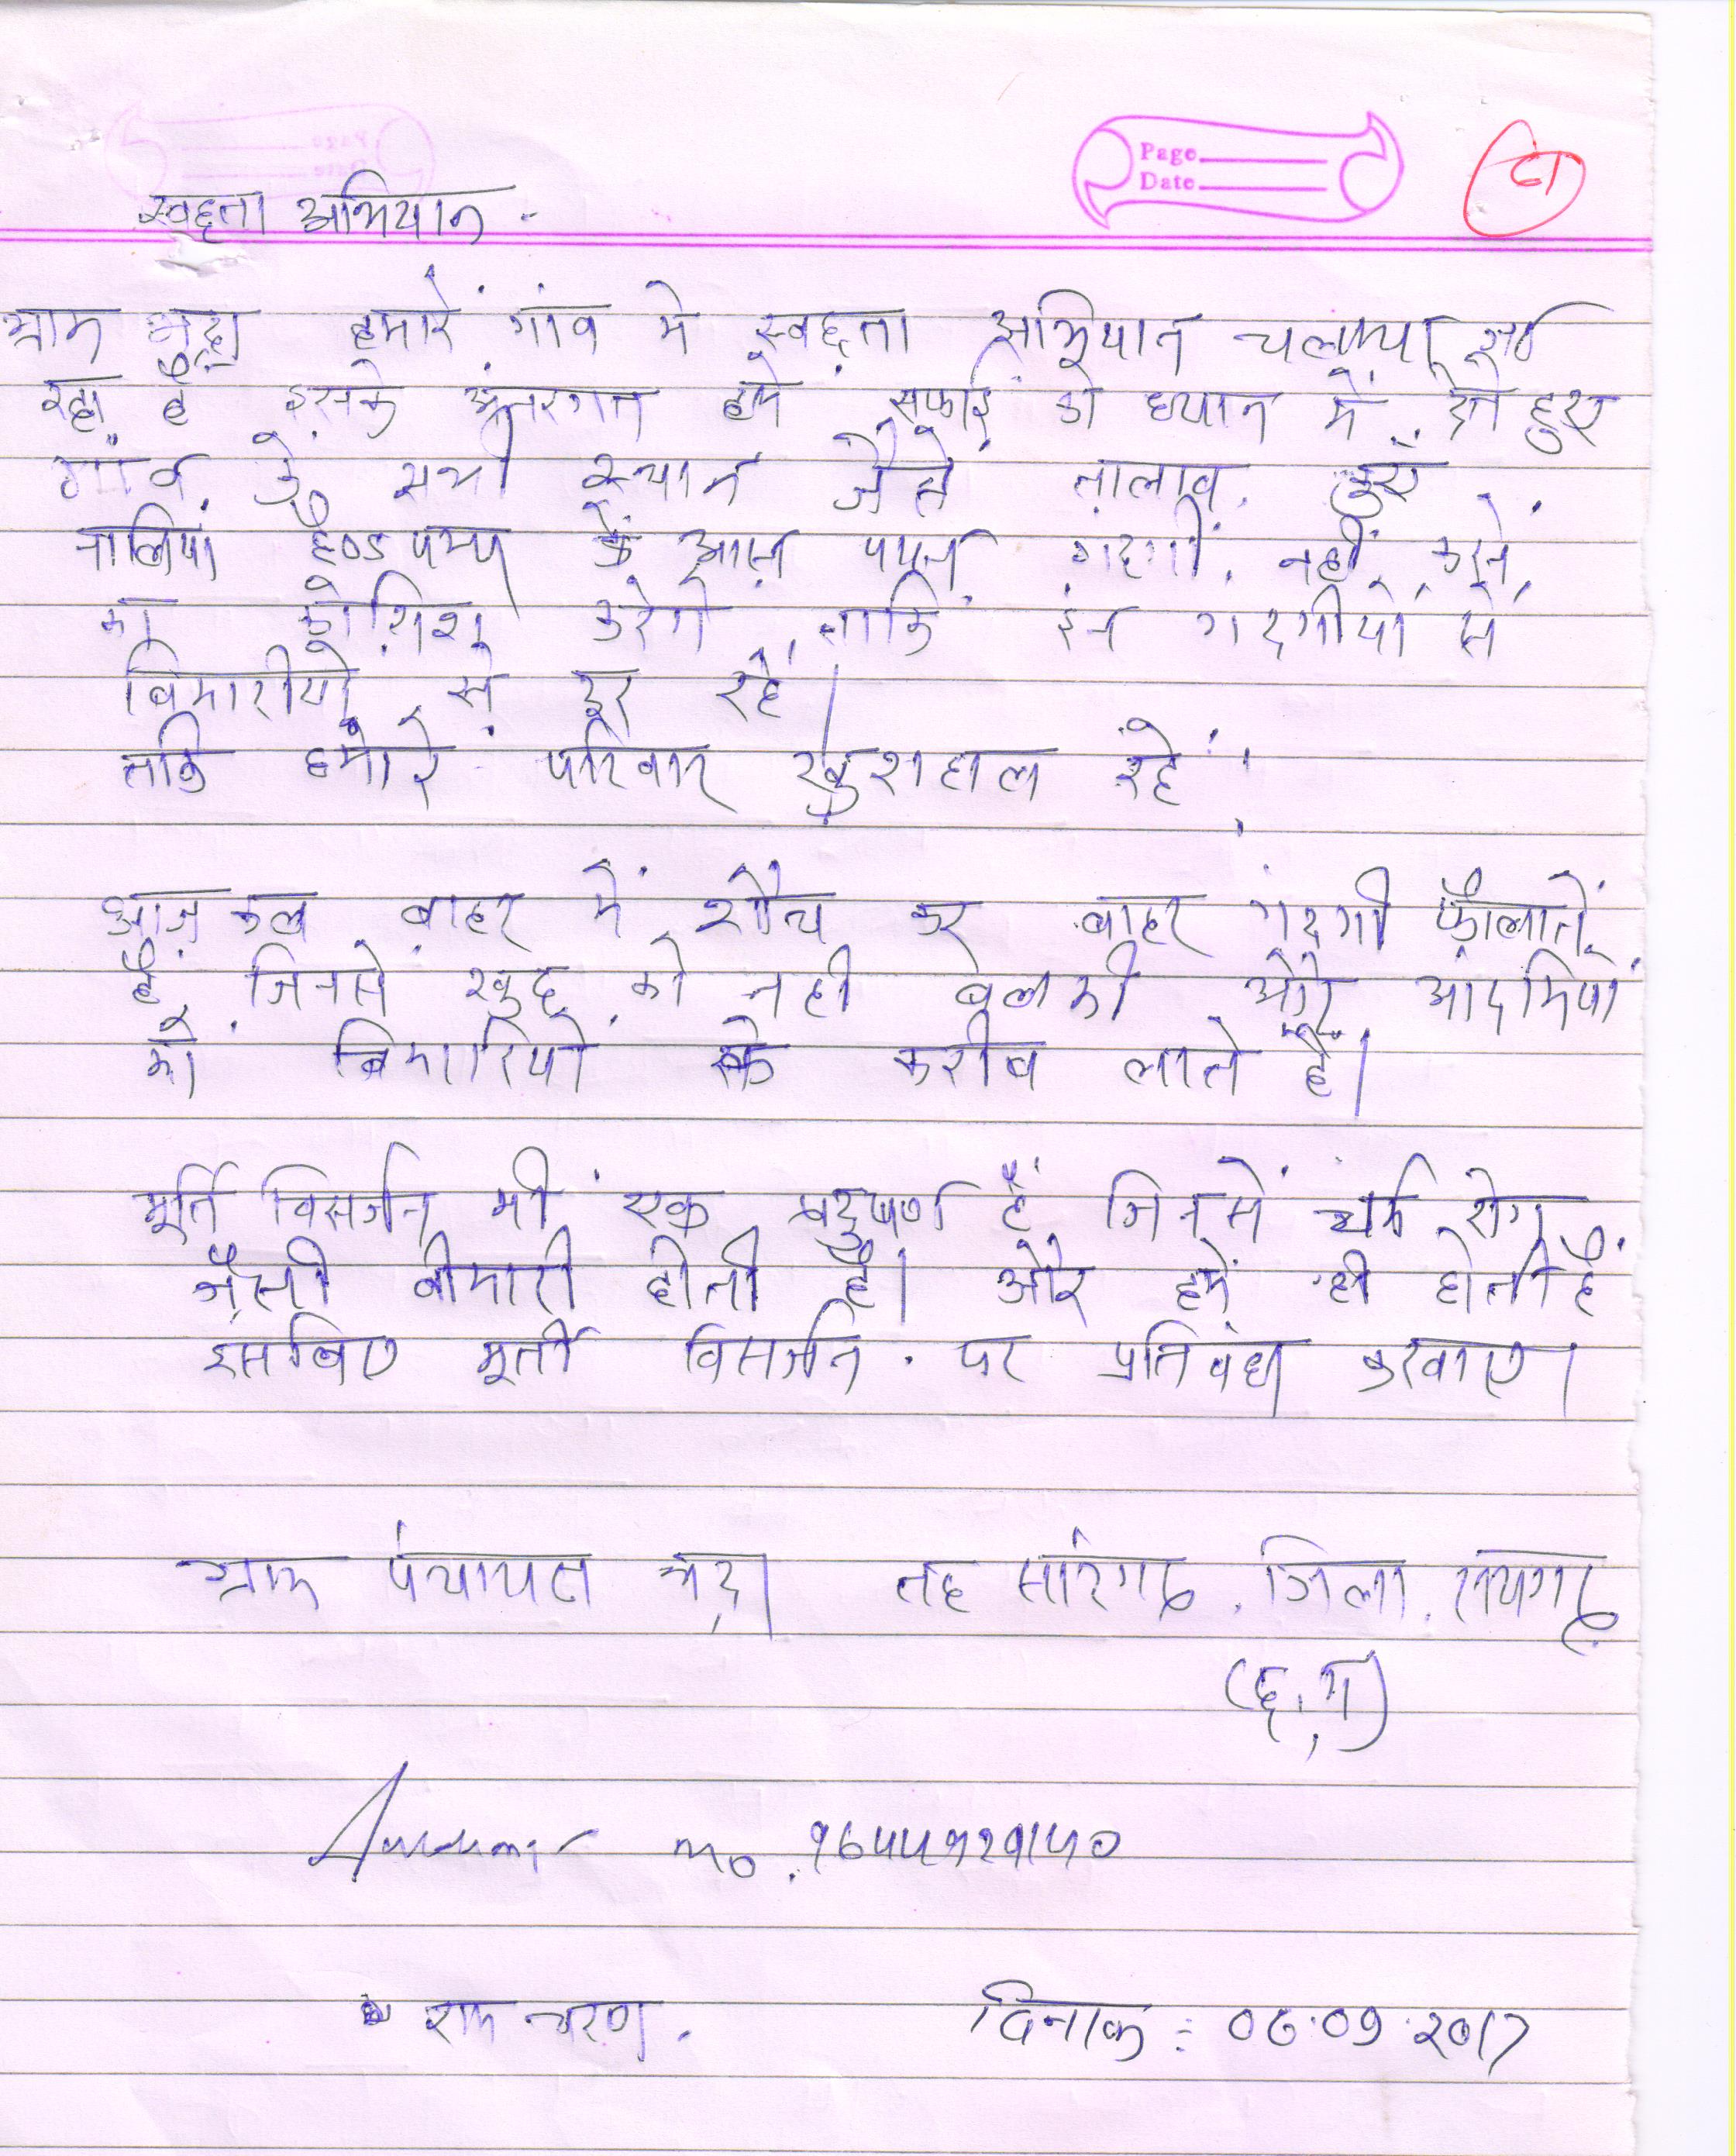 Page
Date
स्वछ्ता अभियान -
ग्राम भद्रा हमारें गांव मे स्वछ्ता अभियान चलाया जा
रहा है इसके अंतरगत हमे सफाई को ध्यान में देते हुए
गांव के सभी स्थान जैसे तालाव, कुएं
नालियां हैण्डपम्प के आस पास गंदगीं नहीं करने
का कोशिश करेगे ताकि इन गंदगीयों से
बिमारीयो से दूर रहें।
ताकि हमारे परिवार खुशहाल रहें।
आज कल बाहर में शौच कर बाहर गंदगी फैलातें
हैं जिनसे खुद को नही बलकी और आदमियों
को बिमारियों के करीव लाते हैं।
मूर्ति विसर्जन भी एक प्रदुषण हैं जिनसें चर्म रोग
जैसी बीमारी होती है। और हमें ही होती है
इसलिए मूर्ती विसर्जन पर प्रतिवंध करवाए।
ग्राम पंचायत भद्रा तह सारंगढ, जिला, रायगढ
(छ,ग)
mo. 9644929140
राम चरण
दिनांक : 06.09.2017